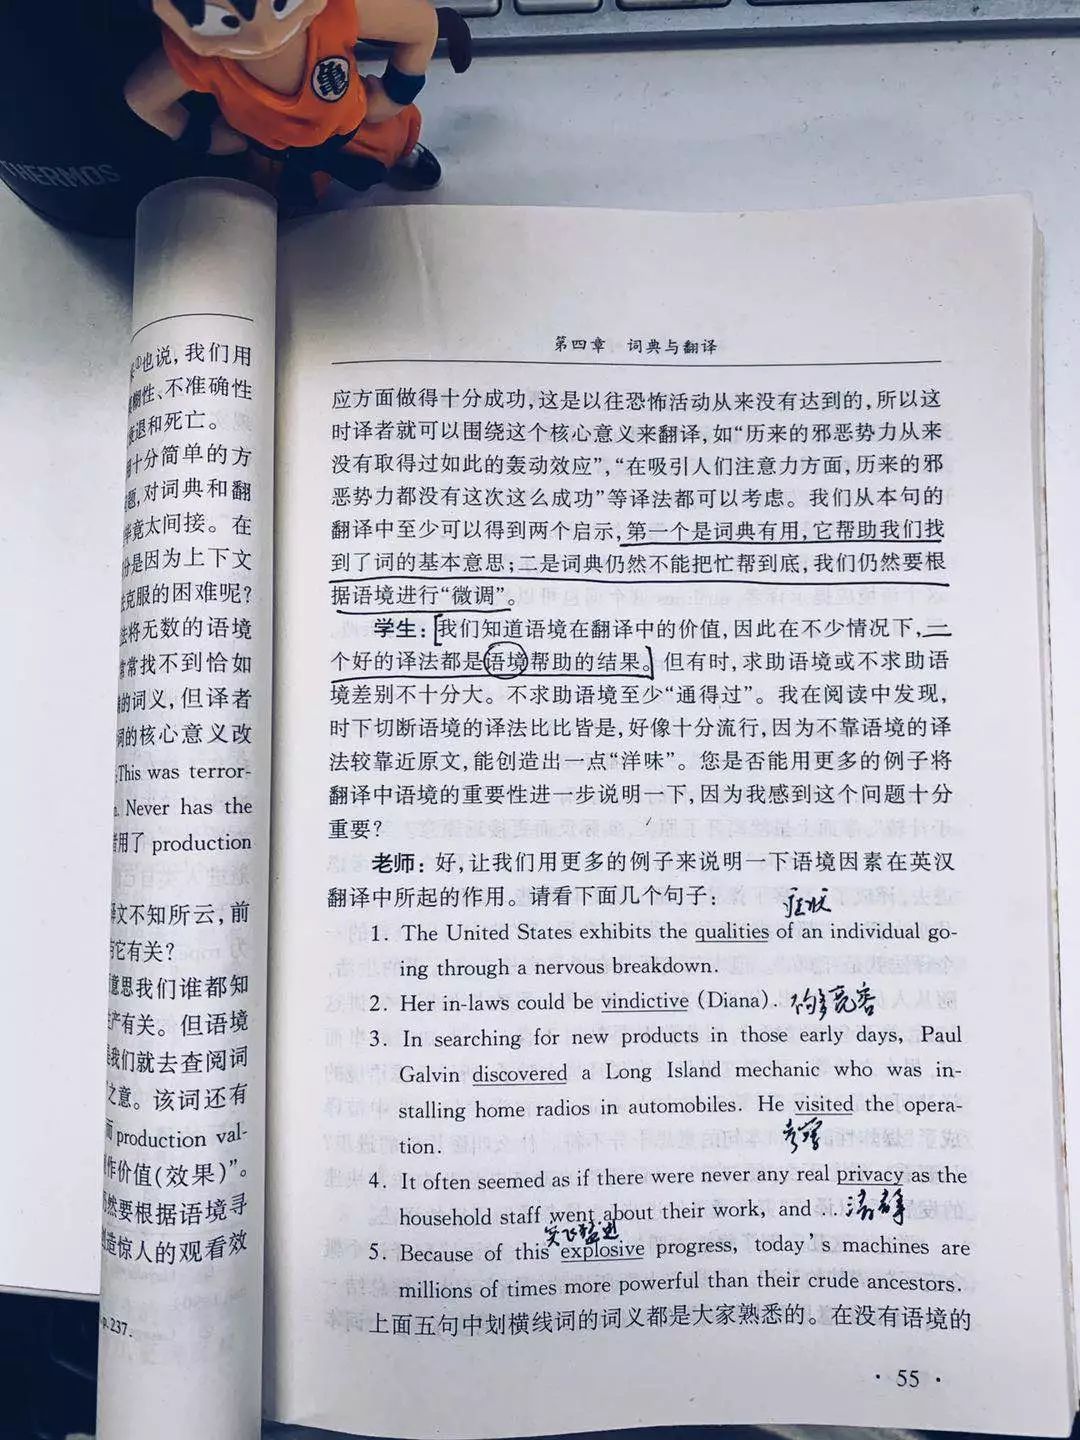 THERMOS
亀
也说，我们用
糊性、不准确性
衰退和死亡。
十分简单的方
题，对词典和翻
毕竟太间接。在
分是因为上下文
克服的困难呢？
法将无数的语境
常常找不到恰如
的词义，但译者
词的核心意义改
:This was terror-
Never has the
用了 production
译文不知所云，前
与它有关？
意思我们谁都知
产有关。但语境
是我们就去查阅词
之意。该词还有
而 production val-
作价值(效果)”。
仍然要根据语境寻
造惊人的观看效
p.237.
第四章 词典与翻译
应方面做得十分成功，这是以往恐怖活动从来没有达到的，所以这
时译者就可以围绕这个核心意义来翻译，如“历来的邪恶势力从来
没有取得过如此的轰动效应”，“在吸引人们注意力方面，历来的邪
恶势力都没有这次这么成功”等译法都可以考虑。我们从本句的
翻译中至少可以得到两个启示，第一个是词典有用，它帮助我们找
到了词的基本意思；二是词典仍然不能把忙帮到底，我们仍然要根
据语境进行“微调”。
学生：我们知道语境在翻译中的价值，因此在不少情况下，一
个好的译法都是语境帮助的结果。但有时，求助语境或不求助语
境差别不十分大。不求助语境至少“通得过”。我在阅读中发现，
时下切断语境的译法比比皆是，好像十分流行，因为不靠语境的译
法较靠近原文，能创造出一点“洋味”。您是否能用更多的例子将
翻译中语境的重要性进一步说明一下，因为我感到这个问题十分
重要？
老师：好，让我们用更多的例子来说明一下语境因素在英汉
翻译中所起的作用。请看下面几个句子：
症状
1. The United States exhibits the qualities of an individual go-
ing through a nervous breakdown.
2. Her in-laws could be vindictive (Diana). 不够宽容
3. In searching for new products in those early days, Paul
Galvin discovered a Long Island mechanic who was in-
stalling home radios in automobiles. He visited the opera-
tion.
考察
4. It often seemed as if there were never any real privacy as the
household staff went about their work, and ... 清静
突飞猛进
5. Because of this explosive progress, today's machines are
millions of times more powerful than their crude ancestors.
上面五句中划横线词的词义都是大家熟悉的。在没有语境的
· 55 ·